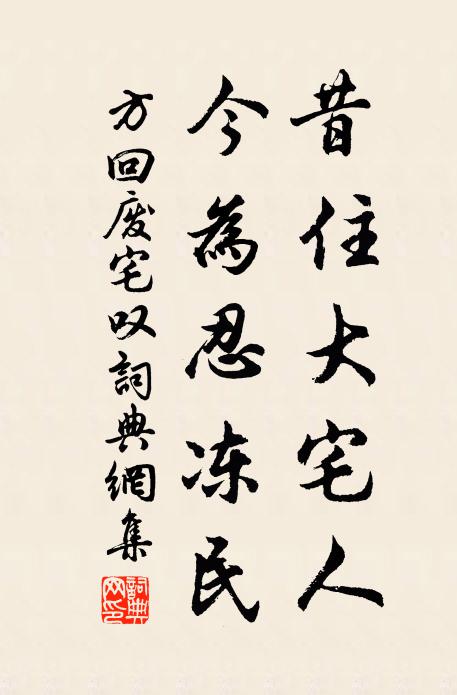 昔住大宅人
今為忍冻民
方回废宅叹詞典網集
詞典网印